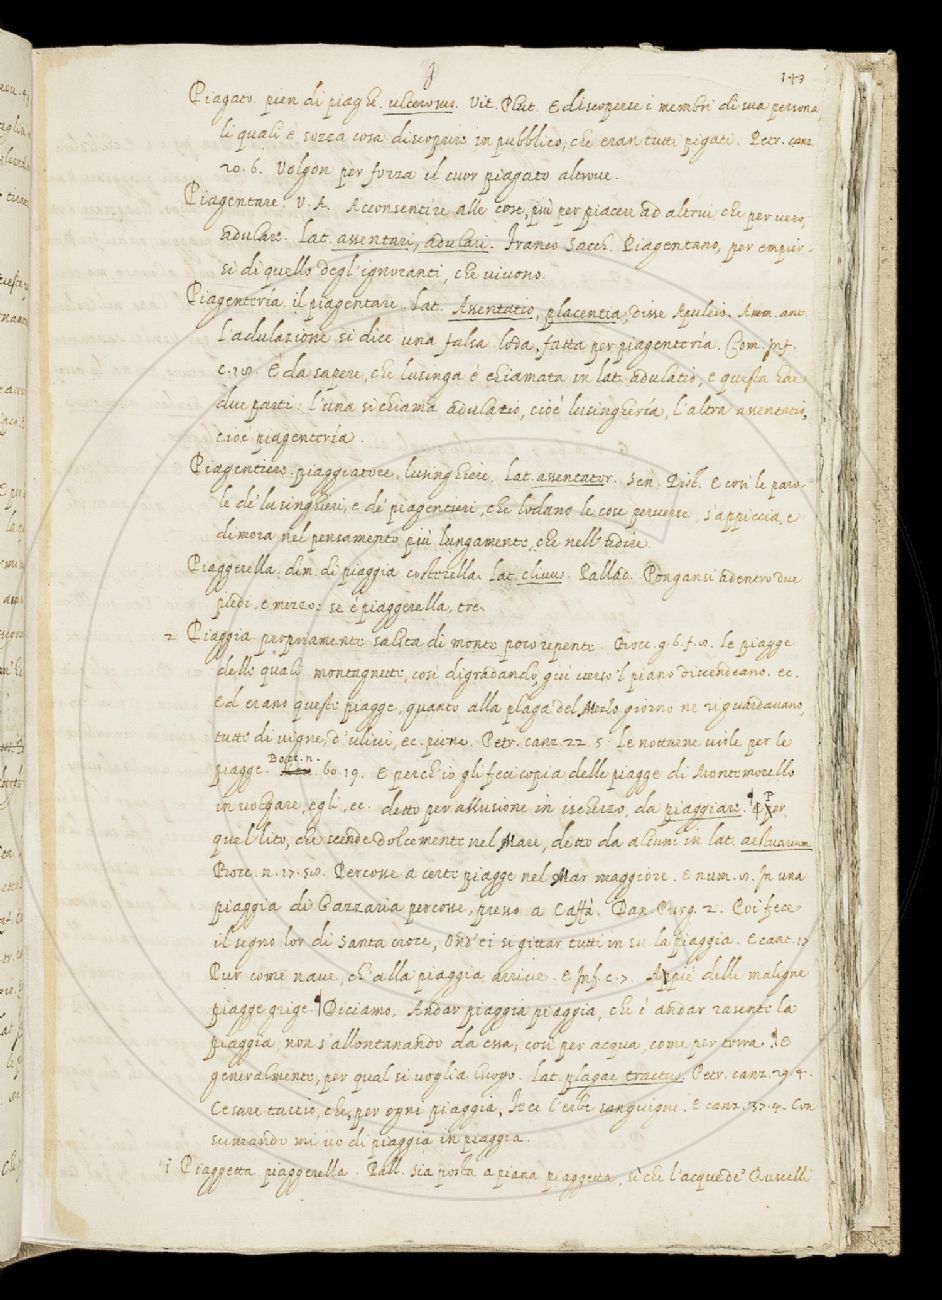 P
143
Piagato. pien di piaghe. ulcerosus. Vit. Plut. E discoperse i membri di sua persona,
li quali è sozza cosa discoprire in pubblico, che eran tutti pigati. Petr. canz.
20. 6. Volgon per forza il cuor piagato altrove.
Piagentare. V. A. Acconsentire alle cose, più per piacere ad altrui che per vero,
adulare. Lat. assentari, adulari. Franco Sacch. Piagentano, per empier-
si di quello degl'ignoranti, che vivono.
Piagenteria il piagentare. Lat. Assentatio, placentia, disse Apuleio. Amm. ant.
L'adulazione si dice una falsa loda, fatta per piagentería. Com. Inf.
c. 18. È da sapere, che lusinga é chiamata in lat. adulatio, e questa hae
due parti: l'una si chiama adulatio, cioé lusinghería, l'altra assentatio,
cioé piagentería.
Piagentiere. piaggiatore, lusinghiere. Lat. assentator. Sen. Pist. E così le paro-
le de' lusinghieri, e de' piagentieri, che lodano le cose perverse, s'appiccia, e
dimora nel pensamento più lungamente, che nell'udire.
Piaggerella. dim. di piaggia costerella. Lat. clivus. Pallad. Pongansi adentro due
piedi, e mezzo: se é piaggerella, tre.
2 Piaggia. propriamente salita di monte poco repente. Bocc. g. 6. f. 8. Le piagge
delle quali montagnette, così digradando, giù verso 'l piano discendeano. ec.
Ed erano queste piagge, quanto alla plaga del Mezzo giorno ne riguardavano,
tutte di vigne, d'ulivi, ec. piene. Petr. canz. 22. 5. Le notturne viole per le
piagge. Bocc. n. 60. 19. E perch'io gli feci copia delle piagge di Montemorello
in volgare, egli, ec. detto per allusione in ischerzo, da piaggiare. ¶ Per
quel lito, che scende dolcemente nel Mare, detto da alcuni in lat. aestuarium
Bocc. n. 17. 58. Percosse a certe piagge nel Mar maggiore. E num. 8. In una
piaggia di Gazzaria percosse, presso a Caffà. Dan. Purg. 2. Poi fece
il segno lor di Santa croce, Ond'ei si gittar tutti in su la piaggia. E cant. 17
Pur come nave, ch'alla piaggia arrive. E Inf. c. 7. Appie delle maligne
piagge grige. ¶ Diciamo. Andar piaggia piaggia, che é andar rasente la
piaggia, non s'allontanando da essa, così per acqua, come per terra. ¶ E
generalmente, per qual si voglia luogo. Lat. plagae tractus. Petr. canz. 29. 4.
Cesare taccio, che, per ogni piaggia, Fece l'erbe sanguigne. E canz. 37. 4. Con
sumando mi vo di piaggia in piaggia.
1 Piaggetta piaggerella. Pall. Sia posta a piana piaggetta, sì che l'acque de' Ruscelli